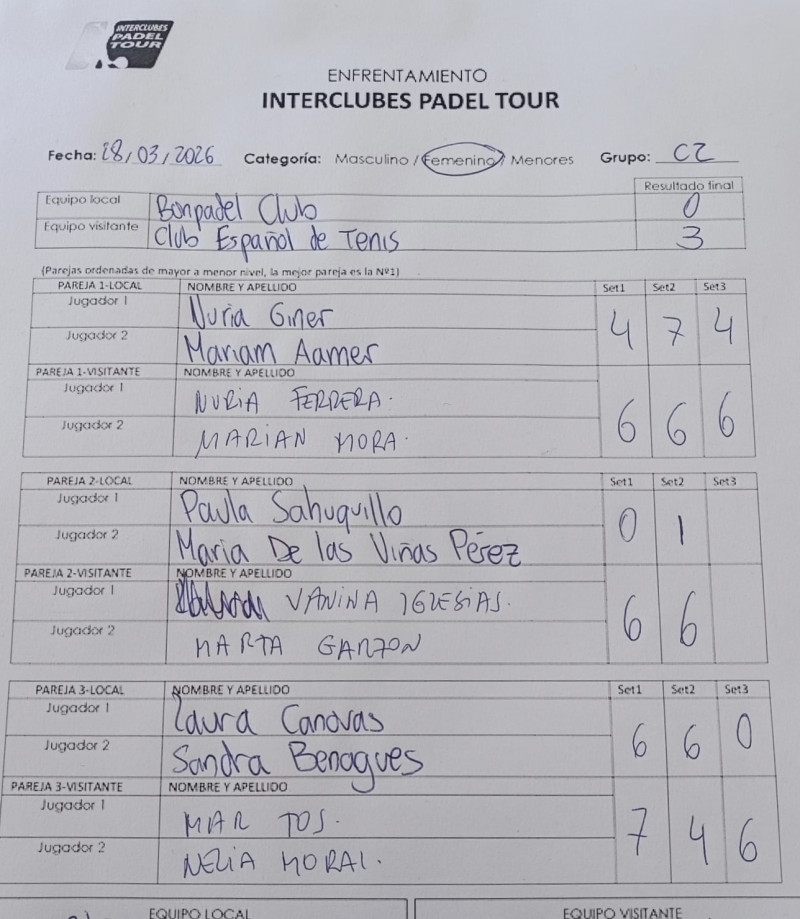 INTERCLUBES
PADEL
TOUR
ENFRENTAMIENTO
INTERCLUBES PADEL TOUR
Fecha: 28/03/2026 Categoría: Masculino / Femenino / Menores Grupo: C2
Resultado final
Equipo local Bonpadel Club 0
Equipo visitante Club Español de Tenis 3
(Parejas ordenadas de mayor a menor nivel, la mejor pareja es la Nº1)
PAREJA 1-LOCAL NOMBRE Y APELLIDO Set1 Set2 Set3
Jugador 1 Nuria Giner
4 7 4
Jugador 2 Mariam Aamer
PAREJA 1-VISITANTE NOMBRE Y APELLIDO
Jugador 1 NURIA FERRERA.
6 6 6
Jugador 2 MARIAN MORA.
PAREJA 2-LOCAL NOMBRE Y APELLIDO Set1 Set2 Set3
Jugador 1 Paula Sahuquillo
0 1
Jugador 2 Maria De las Viñas Pérez
PAREJA 2-VISITANTE NOMBRE Y APELLIDO
Jugador 1 VANINA IGLESIAS.
6 6
Jugador 2 MARTA GARZON
PAREJA 3-LOCAL NOMBRE Y APELLIDO Set1 Set2 Set3
Jugador 1 Laura Canovas
6 6 0
Jugador 2 Sandra Benagues
PAREJA 3-VISITANTE NOMBRE Y APELLIDO
Jugador 1 MAR TOS.
7 4 6
Jugador 2 NELIA MORAL.
EQUIPO LOCAL EQUIPO VISITANTE